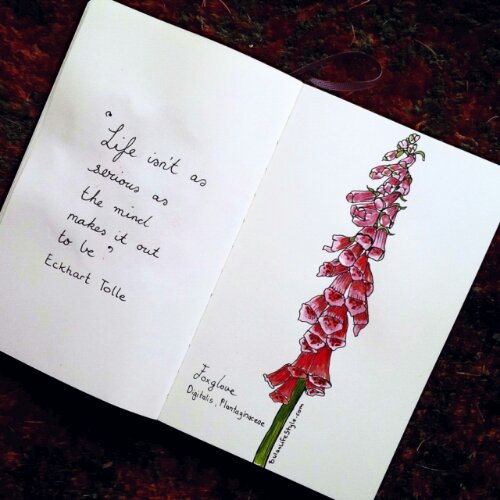 "Life isn't as
serious as
the mind
makes it out
to be"
Eckhart Tolle
Foxglove
Digitalis, Plantaginaceae
bulanlifestyle.com